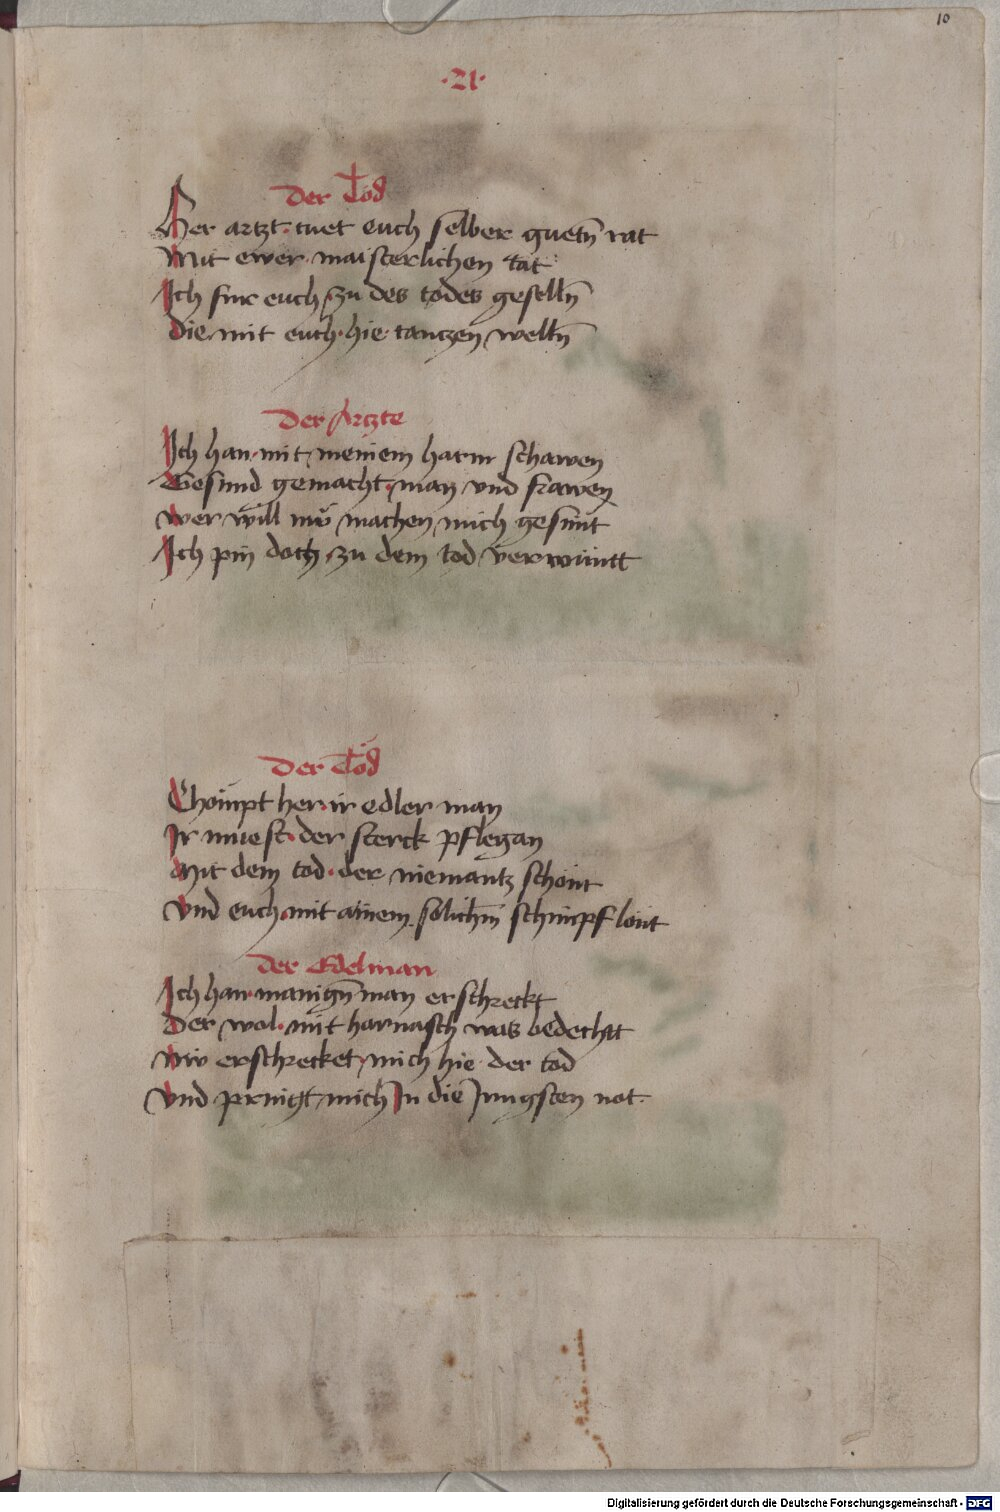 10
·21·
Der Tod
Her artzt tuet euch selber guetn̄ rat
Mit ewer maisterlichen tat
Ich fur euch zu des todes geselln̄
Die mit euch hie tanczen welln̄
Der Artzte
Ich han mit meinem harm schawen
Gesund gemacht man vnd frawen
wer will nu machen mich gesunt
Ich pin doch zu dem tod verwuntt
Der Tod
Chompt her ir edler man
Ir muest der sterck pflegan
Mit dem tod der niemantz schont
Vnd euch mit ainem solichm̄ schimpf lont
Der Edelman
Ich han manign̄ man erschreckt
Der wol mit harnasch was bedechtt
Nw erschrecket mich hie der tod
Vnd pringt mich In die Jungsten not
Digitalisierung gefördert durch die Deutsche Forschungsgemeinschaft - DFG